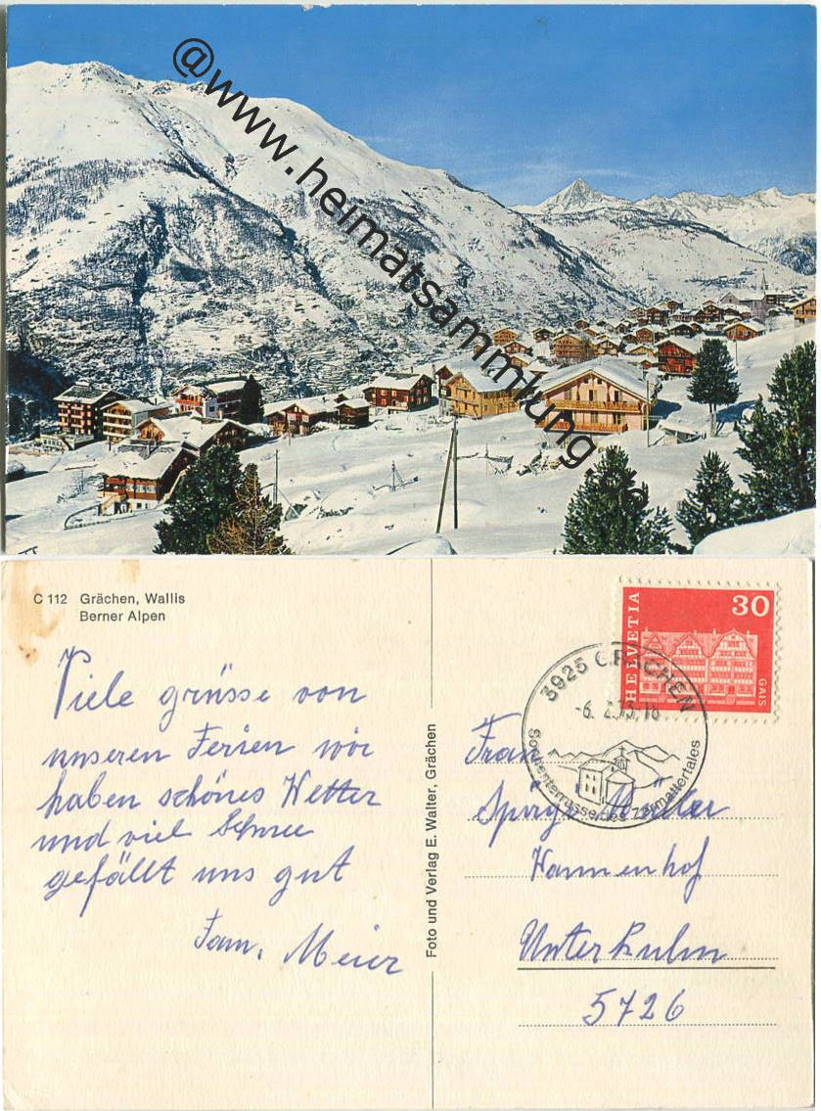 @www.heimatsammlung.de
C 112 Grächen, Wallis
Berner Alpen
Viele grüsse von
unseren Ferien wir
haben schönes Wetter
und viel Schnee
gefällt uns gut
Fam. Meier
Foto und Verlag E. Walter, Grächen
HELVETIA
30
GAIS
3925 GRÄCHEN
Sonnenterrasse des Zermattertales
Frau
Müller
Wannenhof
Unterkulm
5726